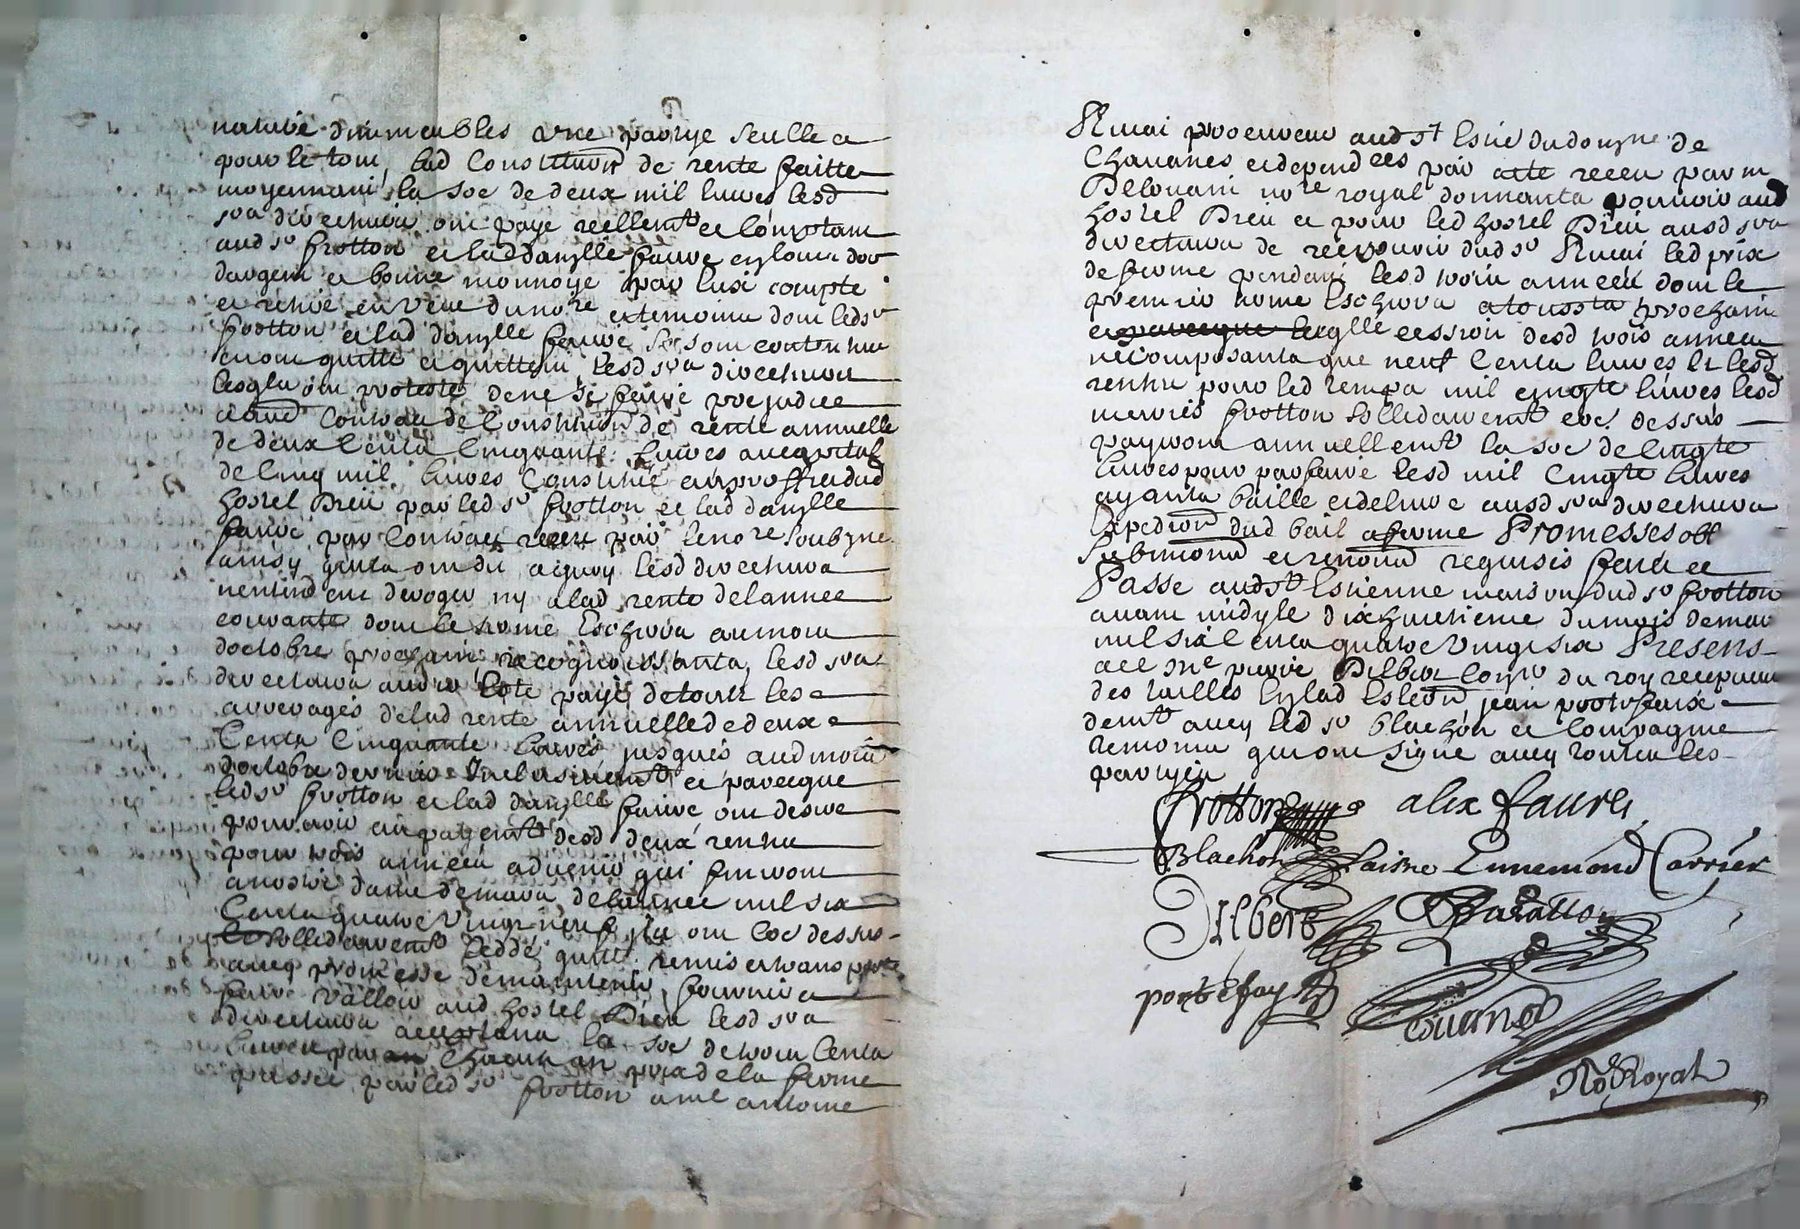 nature dimmeubles une partye seulle e
pour le tout, lad Constituon de rente faitte
moyennant la soe de deux mil livres lesd
srs directeurs ont payé reellemt et comptant
aud sr frotton et lad danylle faure en louis dor
dargent et bonne monnoye par eux compté
et retiré en veue du nore et temoins dont ledsr
frotton et lad danylle faure se sont contentés
en ont quitté et quittent lesd srs directeurs
lesqls ont protesté de ne se faire prejudice
aud Contrat de Constituon de rente annuelle
de deux Cents Cinquante livres au capital
de Cinq mil livres Constitué au proffit dud
hostel Dieu par led sr frotton et lad danylle
faure par Contract receu par le nore soubzne
ainsy quils ont dit a quoy lesd directeurs
nentendent deroger ny a lad rente de lannee
courante dont le terme Escherra au mois
doctobre prochain recognoissants lesd srs
directeurs avoir este payé de touts les
arrerages de lad rente annuelle de deux
Cents Cinquante livres jusques aud mois
doctobre dernier Inclusivemt et parceque
ledsr frotton et lad danylle faure ont desiré
pourvoir au payemt desd deux rentes
pour trois années advenir qui finiront
a nostre dame de mars de lannee mil six
Cents quatre vingt neuf Ils ont Coe dessus
sollidairemt ceddé quitté remis et transporté
avec promesse de maintenir, fournir &
faire valloir aud hostel Dieu lesd srs
directeurs acceptants la soe de trois Cents
livres par chacun an prix de la ferme
passée par led sr frotton a me antoine
Rmai procureur aud st Esne du domyne de
Chavanes et dependces par acte receu par m
Delouani nore royal donnants pouvoir aud
hostel Dieu et pour led hostel Dieu ausd srs
directeurs de recepvoir dud sr Rmai led prix
de ferme pendant lesd trois années dont le
premier terme Escherra a toussts prochain
et parceque Icelle cession desd trois années
ne composants que neuf Cents livres et lesd
rentes pour led temps mil cinqte livres lesd
mariés frotton sollidairemt coe dessus
payront annuellemt la soe de Cinqte
livres pour parfaire lesd mil Cinqte livres
ayants baillé et delivré ausd srs directeurs
Expedion dud bail a ferme Promesses obl
submions et renons requises fait et
Passé aud st Estienne maison dud sr frotton
avant midy le dixhuictieme du mois de mar
mil six Cents quatre vingt six Presens
a ce me pierre Dilbert Coner du roy recepveur
des tailles En lad Eslecon jean porte faix
demt avec led sr blachon et Compagnie
temoins qui ont signé avec toutes les
partyes
frotton alix faure
Blachon faisne Ennemond Carrier
Dilbert Baratton
portefay
No Royal